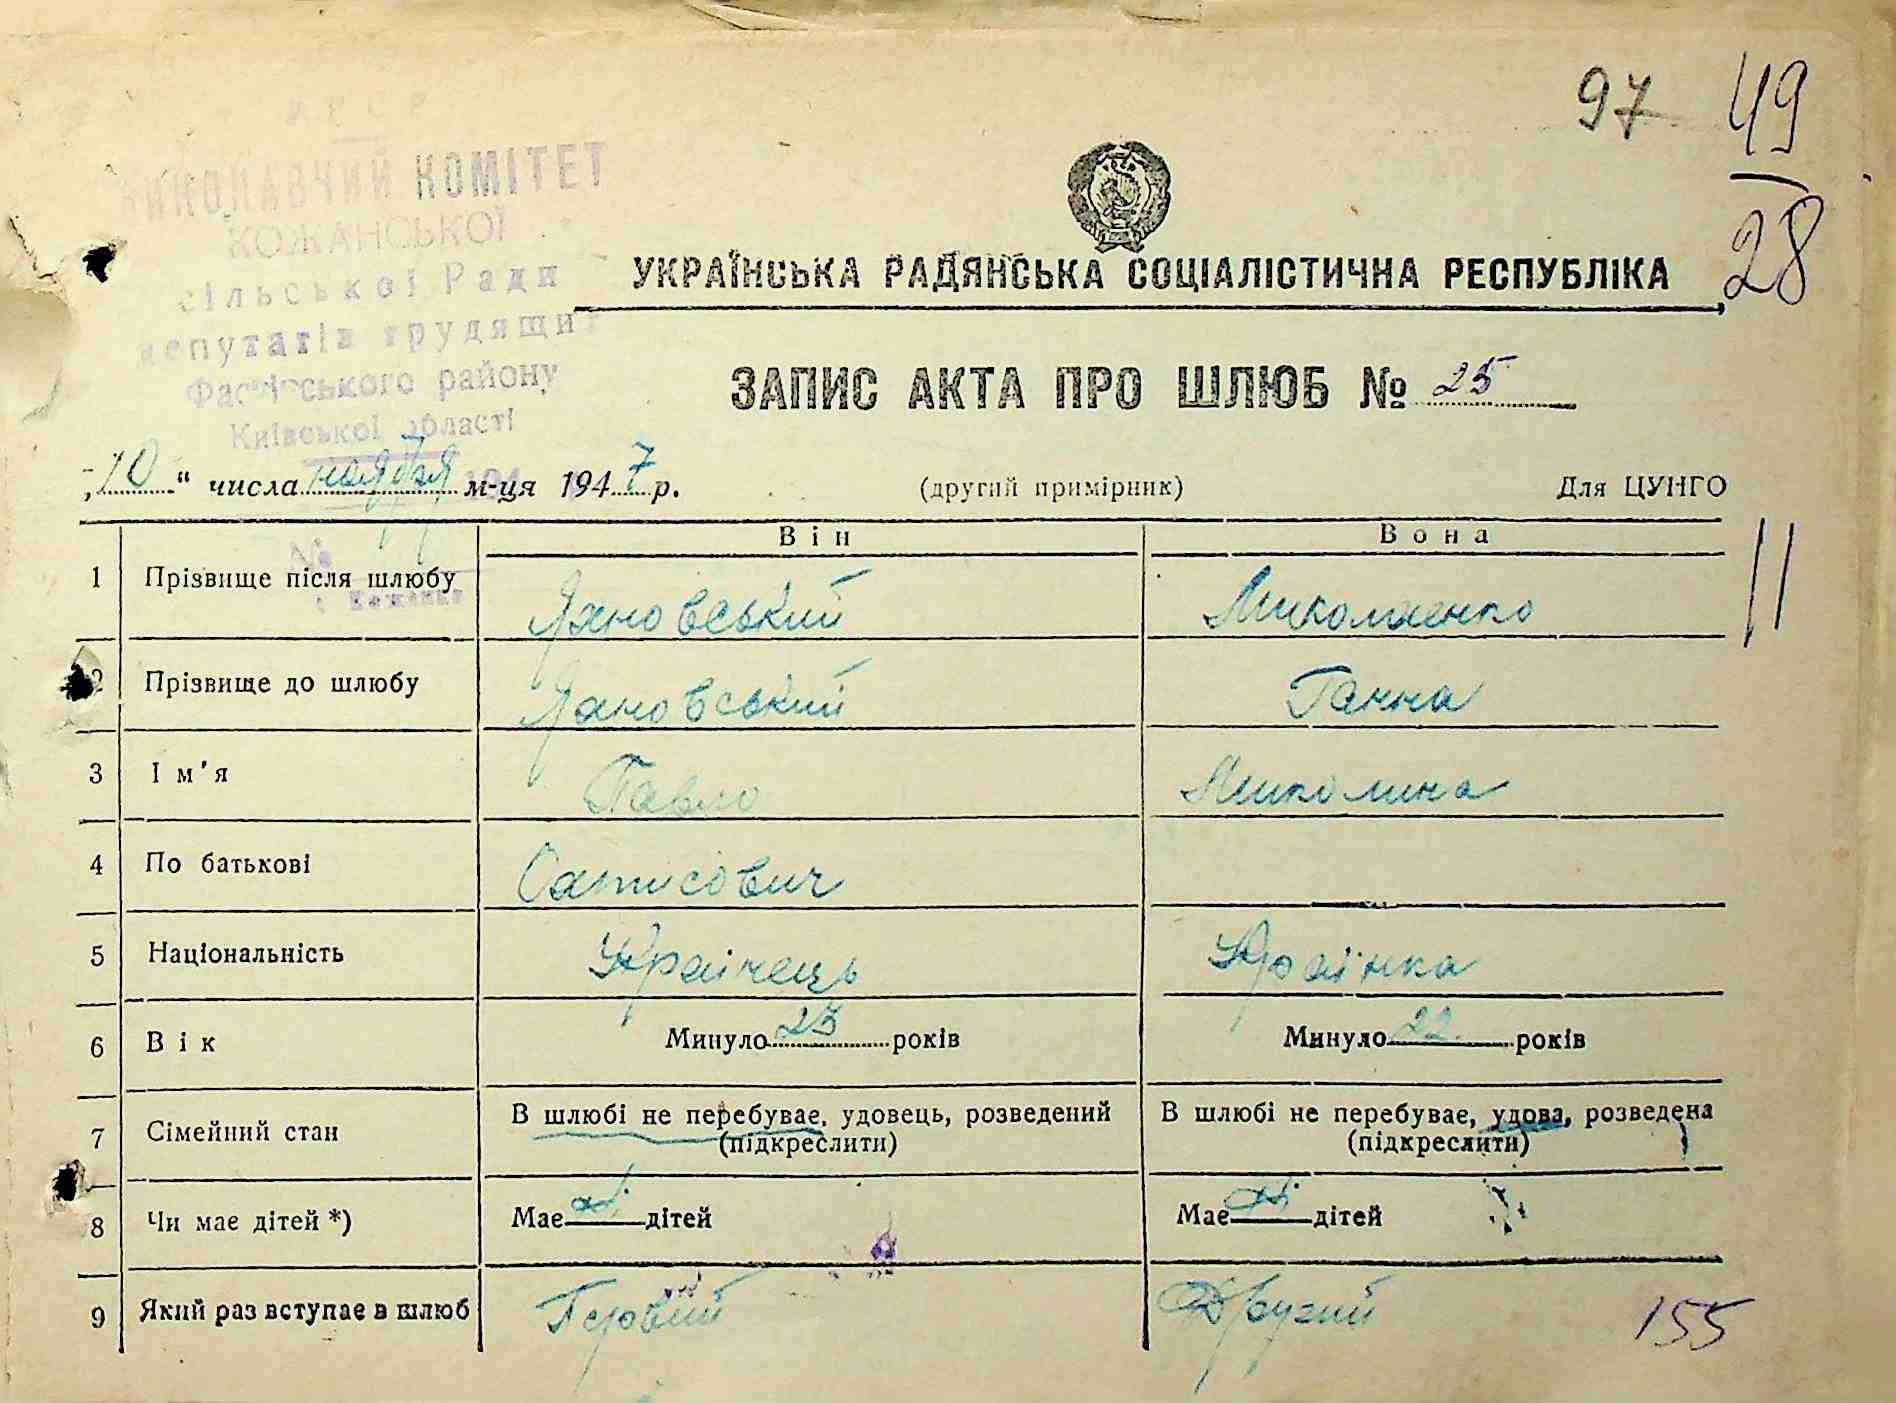 97 49
28
ВИКОНАВЧИЙ КОМІТЕТ
КОЖАНСЬКОЇ
сільської Ради
депутатів трудящих
Фастівського району
Київської області
УКРАЇНСЬКА РАДЯНСЬКА СОЦІАЛІСТИЧНА РЕСПУБЛІКА
ЗАПИС АКТА ПРО ШЛЮБ № 25
„10“ числа ноября м-ця 1947 р. (другий примірник) Для ЦУНГО
Він Вона
1 Прізвище після шлюбу Яхновський Миколаенко
2 Прізвище до шлюбу Яхновський Ганна
3 Ім'я Павло Миколина
4 По батькові
5 Національність Украінець Украінка
6 Вік Минуло 23 років Минуло 22 років
7 Сімейний стан В шлюбі не перебуває, удовець, розведений (підкреслити) В шлюбі не перебуває, удова, розведена (підкреслити)
8 Чи має дітей *) Має дітей Має дітей
9 Який раз вступає в шлюб Первий Другий
155